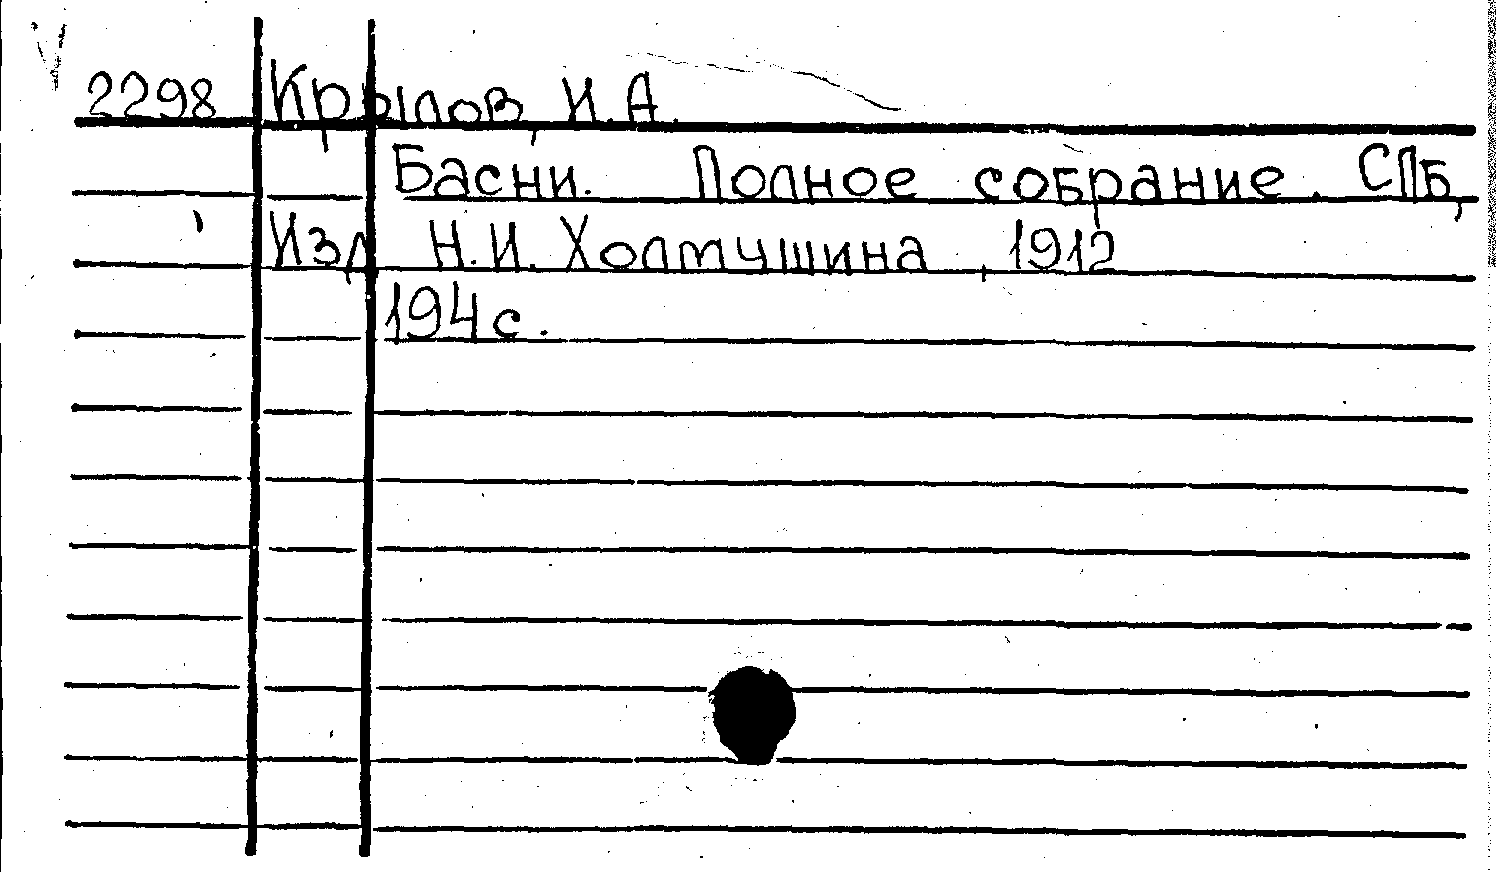 2298 Крылов, И.А.
Басни. Полное собрание. СПб,
Изд Н.И. Холмушина, 1912
194с.